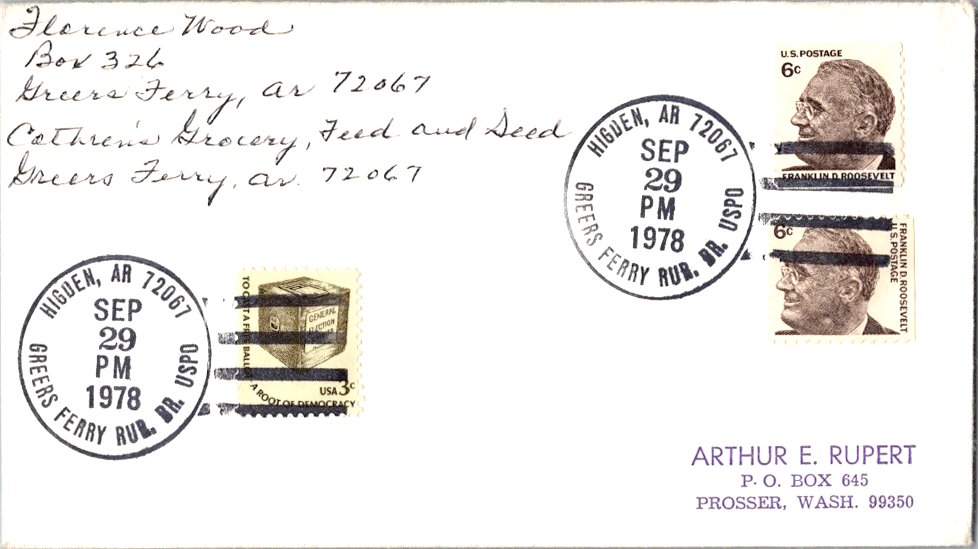 Florence Wood
Box 326
Greers Ferry, Ar 72067
Cothren's Grocery, Feed and Seed
Greers Ferry, Ar. 72067
U.S. POSTAGE
6c
FRANKLIN D. ROOSEVELT
HIGDEN, AR 72067
SEP
29
PM
1978
GREERS FERRY RUR. BR. USPO
6c
FRANKLIN D. ROOSEVELT
U.S. POSTAGE
HIGDEN, AR 72067
SEP
29
PM
1978
GREERS FERRY RUR. BR. USPO
TO CAST A FREE BALLOT
GENERAL
ELECTION
USA 3c
A ROOT OF DEMOCRACY
ARTHUR E. RUPERT
P. O. BOX 645
PROSSER, WASH. 99350